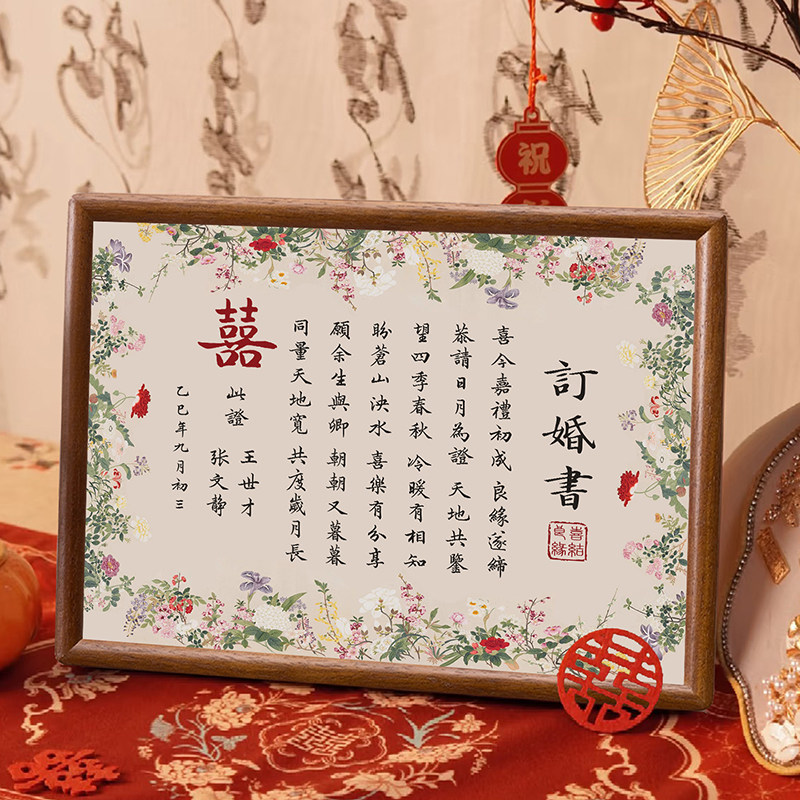 訂婚書
喜結良緣
喜今嘉禮初成 良緣遂締
恭請日月為證 天地共鑒
望四季春秋 冷暖有相知
盼蒼山泱水 喜樂有分享
願余生與卿 朝朝又暮暮
同量天地寬 共度歲月長
囍
此證
王世才
张文静
乙巳年九月初三
祝
囍
囍
囍